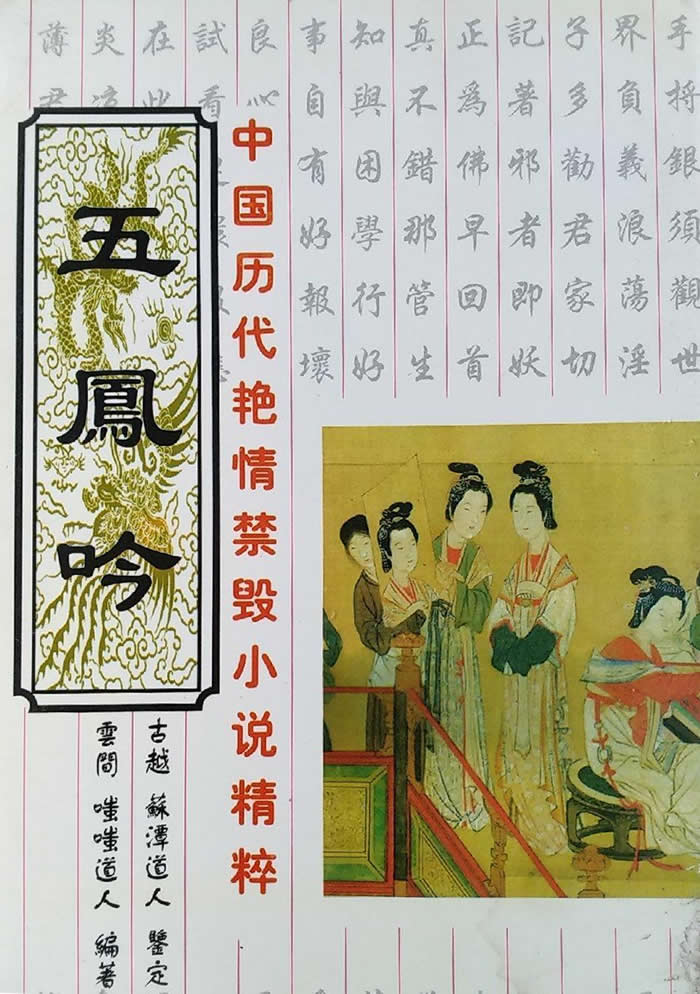 手捋銀須觀世
界負義浪蕩淫
子多勸君家切
記著邪者即妖
正爲佛早回首
真不錯那管生
知與困學行好
事自有好報壞
良心
試看
在此
炎凉
薄君
中国历代艳情禁毁小说精粹
五鳳吟
古越 蘇潭道人 鑒定
雲間 嗤嗤道人 編著